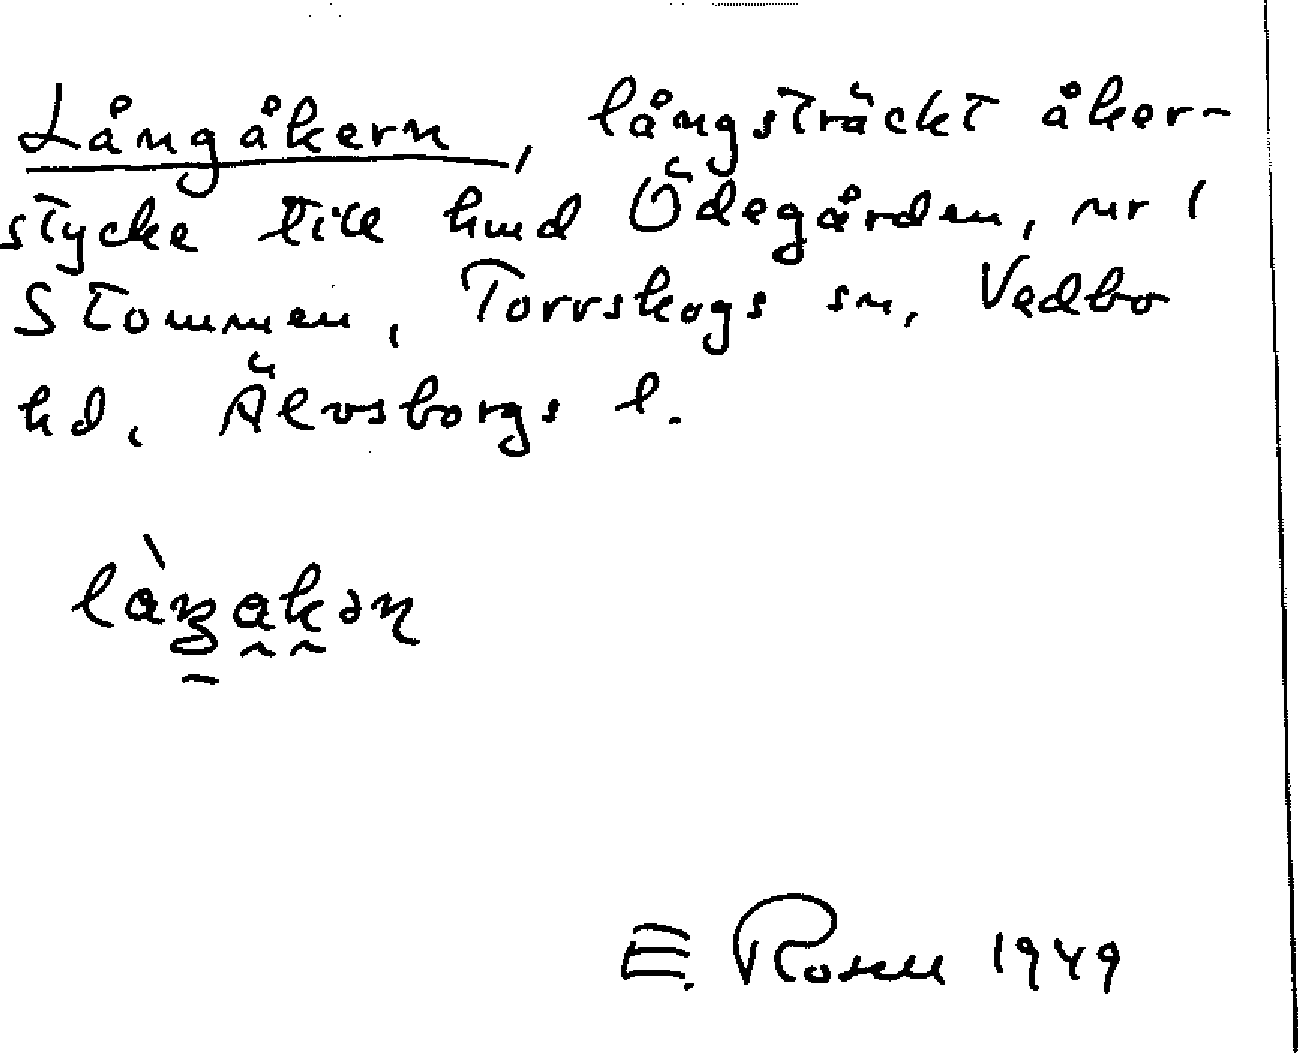 Långåkern, långsträckt åker-
stycke till hmd Ödegården, nr 1
Stommen, Torrskogs sn, Vedbo
hd, Älvsborgs l.
E. Rosen 1949